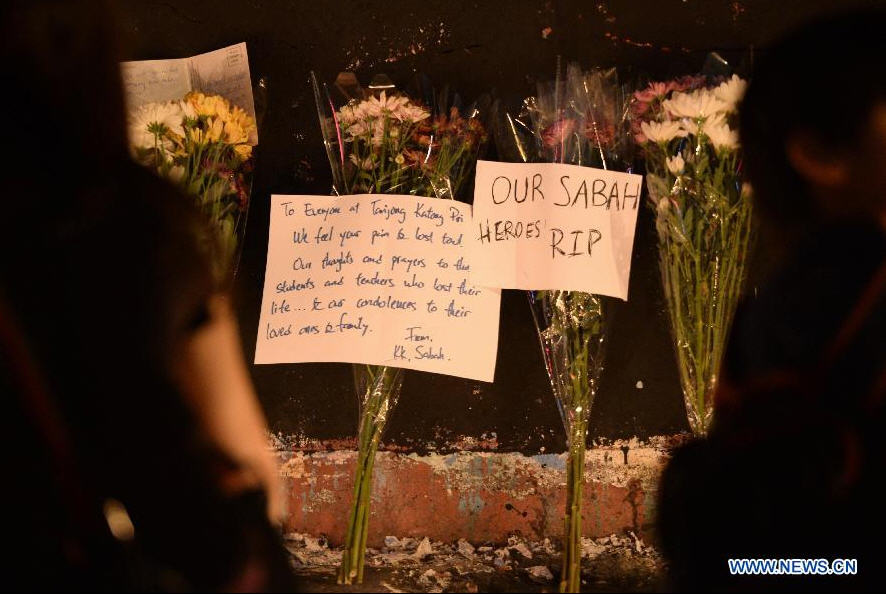 To Everyone at Tanjong Katong Pri
We feel your pain & lost too!
Our thoughts and prayers to the
students and teachers who lost their
life... & our condolences to their
loved ones & family.
From,
KK, Sabah.
OUR SABAH
HEROES'
RIP
WWW.NEWS.CN